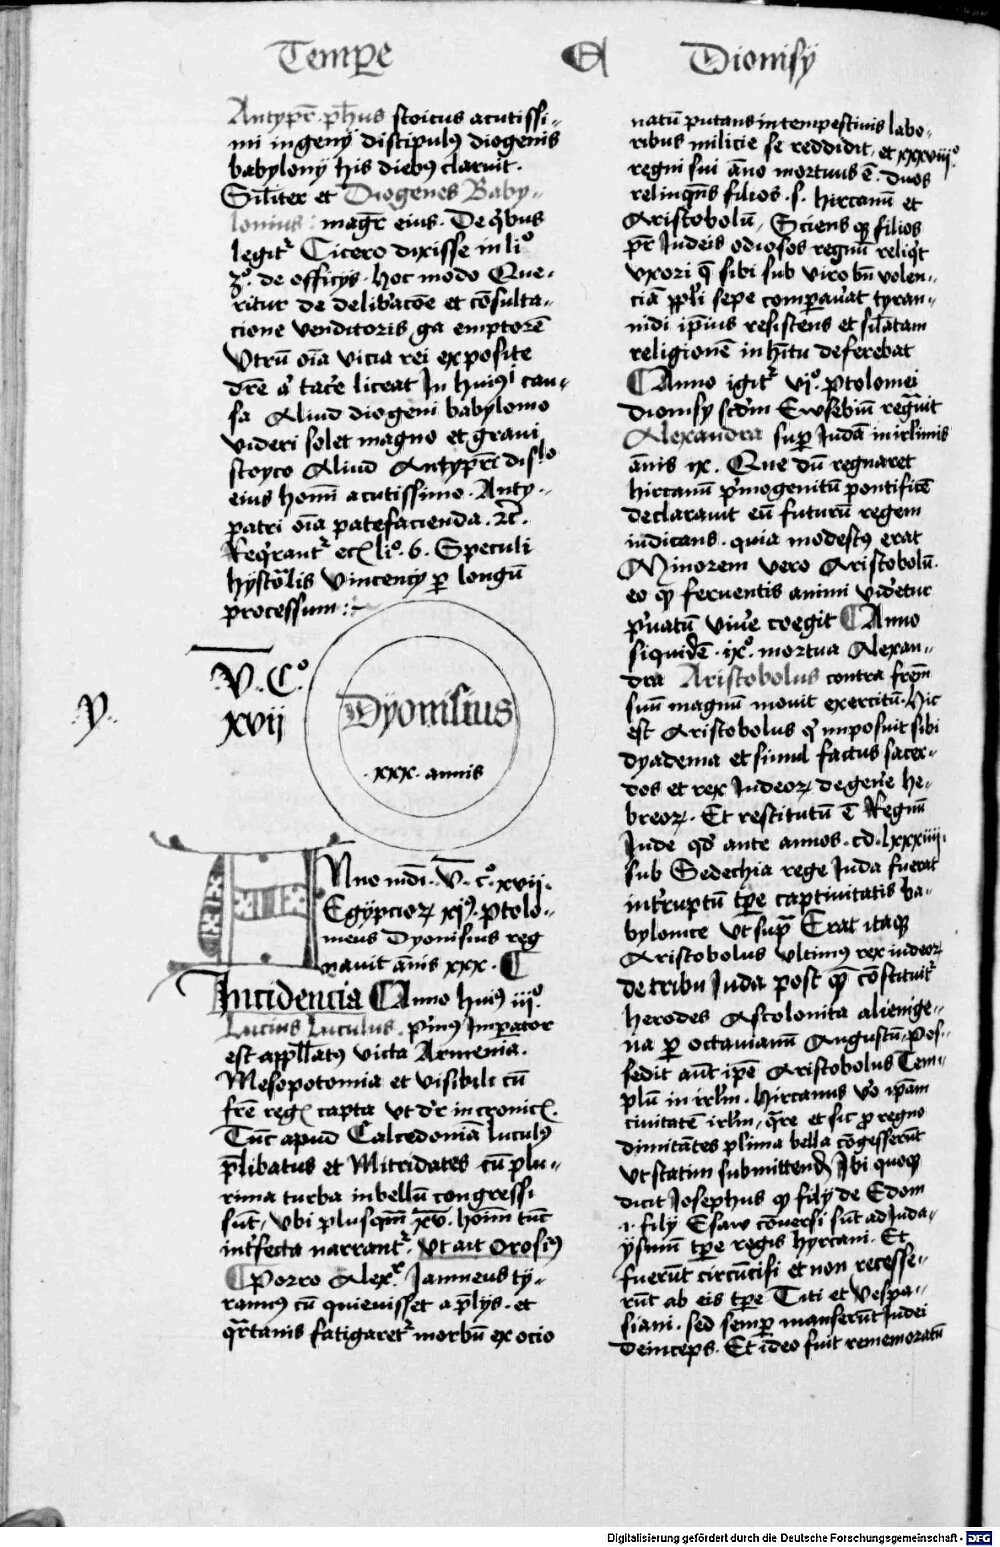 Tempe A Dionisy
Antypr̄ . ph̄us stoicus acutissi-
mi ingenÿ discipulꝰ diogenis
babylonÿ his diebꝰ claruit .
Sil̄iter et Diogenes Baby-
lonius : magr̄ eius . De qͥbus
legitᷣ Cicero dixisse in liᵒ
3ᵒ . de officÿs . hoc modo Que-
ritur de delib̄acōe et cōsulta-
cione venditoris . ga emptorē
Vtrū oīa vicia rei exposite
dr̄e aͥ tac̄e liceat In huiꝰi cau-
sa Aliud diogeni babylonio
videri solet magno et graui
stoyco Aliud Antypr̄i disˡᵒ
eius homī acutissimo . Anty-
patri oīa patefacienda . ꝛc̄ .
Reqͥrantᷣ ecꝭ liᵒ . 6 . Speculi
hÿstorͣlis vincencÿ ꝑ longū
processum :
.V. Cᵒ.
.y. xvij
Dÿonisius
. xxx . annis
ANno mdī . V̄ . cᵒ . xvij .
Egÿpcioꝝ xjꝰ . Ptolo-
meus Dyonisius reg
nauit ān̄is xxx . ¶
Incidencia ¶ Anno huiꝰ iijᵒ.
Lucius Luculus . pͥmꝰ Imperator
est appl̄latꝰ victa Armenia .
Mesopotomia et visibili cū
fr̄e regꝭ capta vt dr̄ in cronicꝭ .
Tūc apud Calcedoniā luculꝰ
p̄libatus et Mitridates cū plu-
rima turba in bellū congressi
sūt , vbi plusqm̄ x̄v̄ . hom̄ tūc
int̄fecta narrantᷣ . vt ait Orosiꝰ
¶ Porro Alexʳ Jamneus tÿ-
rannꝰ cū quieuisset a p̄lÿs . et
qͣrtanis fatigaretᷣ morbū ex ocio
natū putans in tempestiuis labo-
ribus milicie se reddidit , et xxxviijᵒ .
regni sui āno mortuus ē . duos
relinqn̄s filios . s . hircanū et
Aristobolū , Sciens qꝫ filios
pr̄ Judeis odiosos regnū reliqͥt
vxori q̄ sibi sub viro bn̄ volen-
ciā ppl̄i sepe comꝑau̇at tyran-
nidi ip̄ius resistens et sil̄atam
religionē in h̄itu deferebat
¶ Anno igitᷣ vjᵒ . Ptolomei
dionisÿ scd̄m Ewsebiū regͣuit
Alexandra suꝑ Judā in irl̄imis
ān̄is ix . Que dū regnaret
hircanū pͥmogenitū pontificē
declarauit eū futurū regem
iudicans . quia modestꝰ erat
Minorem vero Aristobolū .
eo qꝫ feruentis animi videtur
pͥuatū viue̅ coegit ¶ Anno
siquidē . ixᵒ . mortua Alexan-
dra Aristobolus contra fr̄em
suū magnū mouit exercitū . hic
est Aristobolus qͥ imposuit sibi
dyadema et simul factus sacer-
dos et rex Judeoꝝ de genē he-
breoꝝ . Et restitutū ē Regnū
Jude qd̄ ante annos . cd . lxxxiiij .
sub Sedechia rege Juda fuerat
int̄ruptū tꝑe captiuitatis ba-
bylonice vt supͣ Erat itaqꝫ
Aristobolus vltimꝰ rex iudeoꝝ
de tribu Juda post qͣ cōstituitᷣ
herodes Ascolonita alienige-
na ꝑ octauianū Augustū . Pos-
sedit aūt ip̄e Aristobolus Tem-
plū in irl̄m . hircanus vᵒ ip̄am
ciuitatē irl̄m , qͣre et sic ꝓ regno
dimitātes plima bella cōgesserūt
vt statim submittend Ibi quoqꝫ
dicit Josephus qꝫ filÿ de Edom
. i . filÿ Esaw cōuersi sūt ad Juda-
ÿsmū tꝑe regis hÿrcani . Et
fuerūt circūcisi et non recesse-
rūt ab eis tꝑe Titi et vespa-
siani . sed semꝑ manserūt Judei
deinceps . Et ideo fuit rememoratū